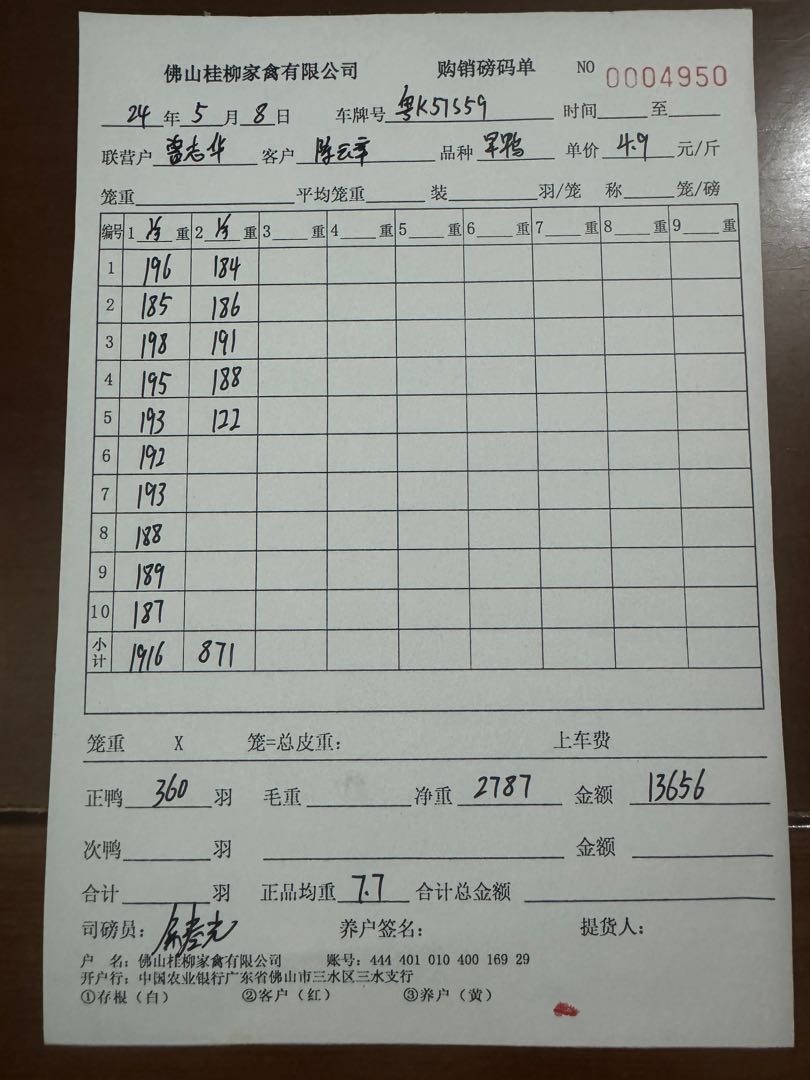 佛山桂柳家禽有限公司 购销磅码单 NO 0004950
24 年 5 月 8 日 车牌号 粤K51S59 时间 至
联营户 曾志华 客户 陈云章 品种 旱鸭 单价 4.9 元/斤
笼重 平均笼重 装 羽/笼 称 笼/磅
编号 1 重 2 重 3 重 4 重 5 重 6 重 7 重 8 重 9 重
1 196 184
2 185 186
3 198 191
4 195 188
5 193 122
6 192
7 193
8 188
9 189
10 187
小计 1916 871
笼重 X 笼=总皮重: 上车费
正鸭 360 羽 毛重 净重 2787 金额 13656
次鸭 羽 金额
合计 羽 正品均重 7.7 合计总金额
司磅员: 养户签名: 提货人:
户 名: 佛山桂柳家禽有限公司 账号: 444 401 010 400 169 29
开户行: 中国农业银行广东省佛山市三水区三水支行
①存根(白) ②客户(红) ③养户(黄)